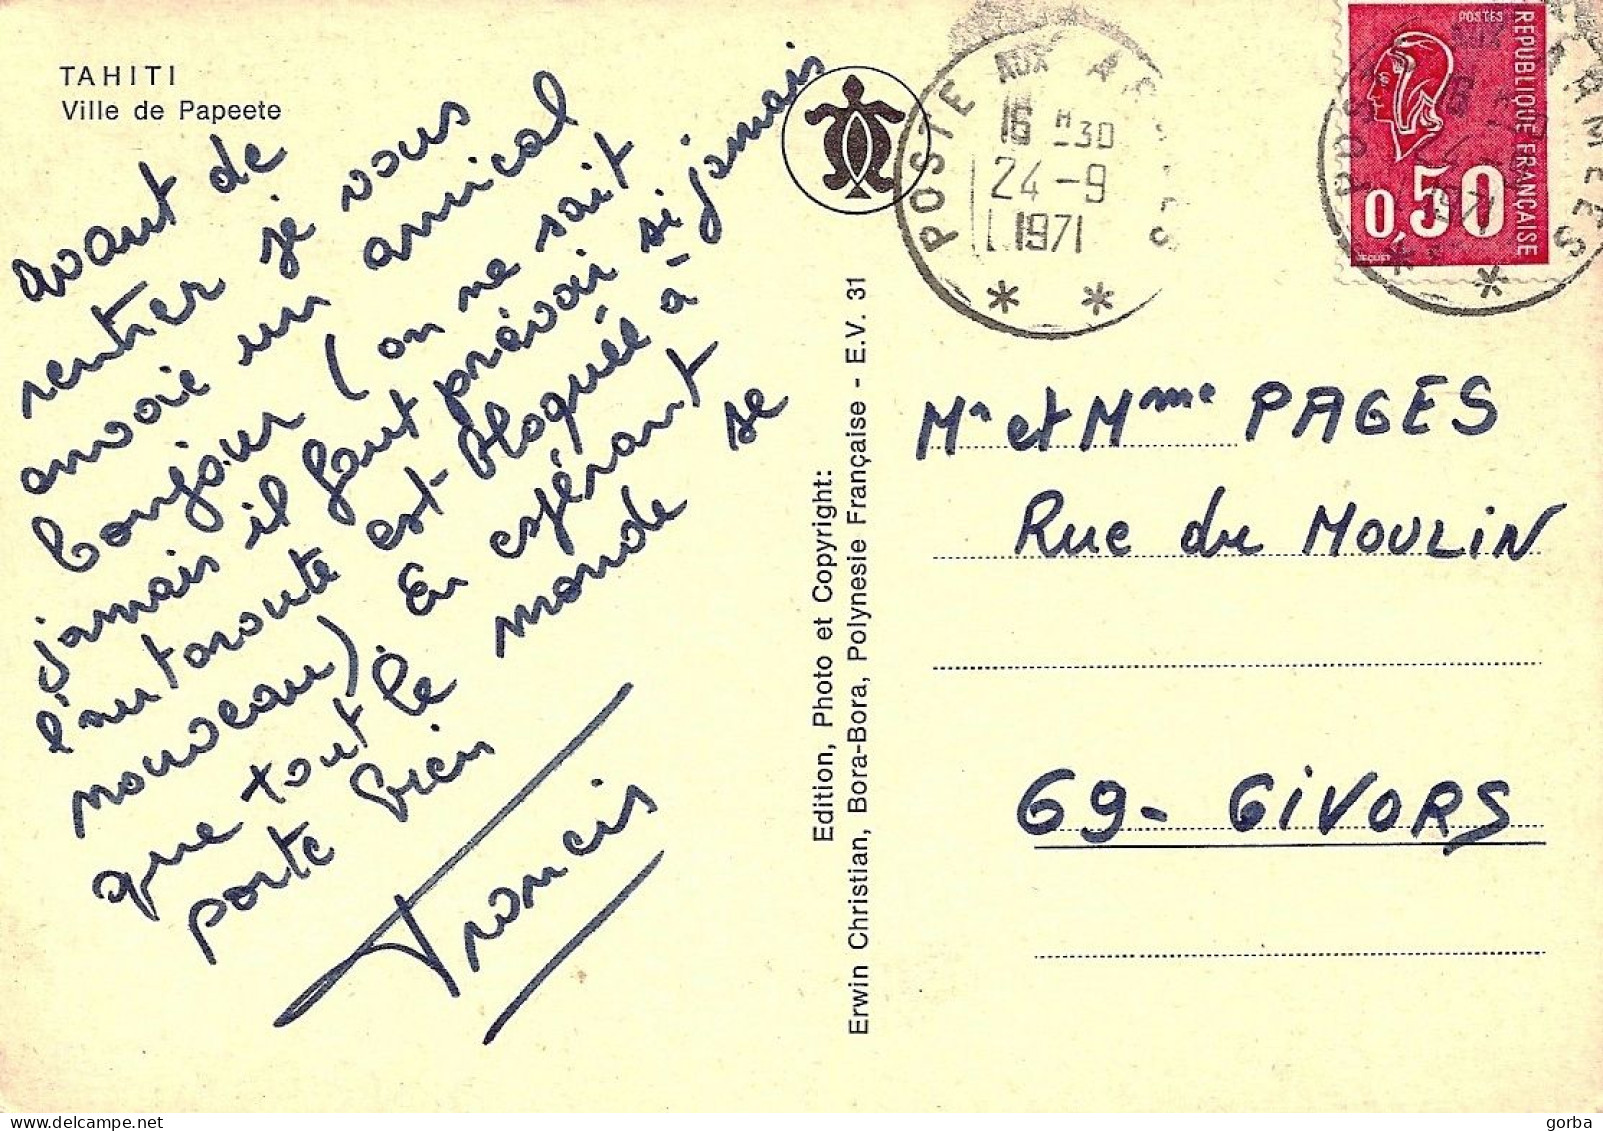 TAHITI
Ville de Papeete
Avant de
rentrer je vous
envoie un amical
bonjour (on ne sait
jamais il faut prévoir si jamais
l'autoroute est bloquée à
nouveau). En espérant
que tout le monde se
porte bien
Francis
Edition, Photo et Copyright:
Erwin Christian, Bora-Bora, Polynesie Française - E.V. 31
POSTE AUX ARMEES
16 H 30
24-9
1971
* *
POSTES
REPUBLIQUE FRANÇAISE
0,50
BEQUET
POSTE AUX ARMEES
Mr et Mme PAGES
Rue du MOULIN
69- GIVORS
gorba